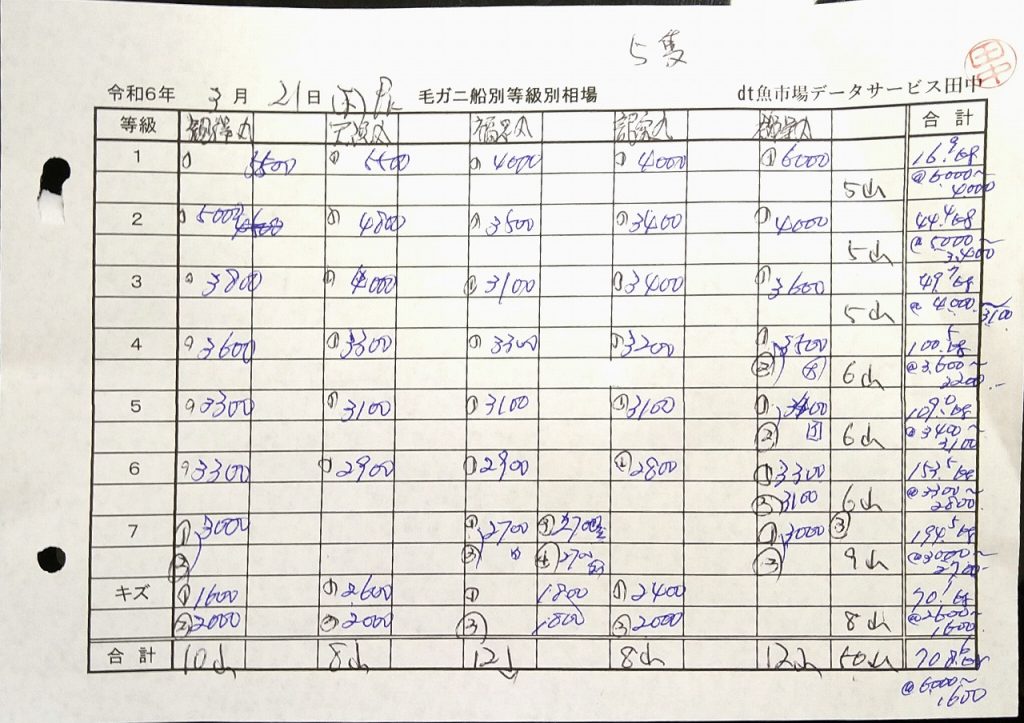 5隻
令和6年 3月 21日 (木) 毛ガニ船別等級別相場 dt魚市場データサービス田中
等級 合計
1 ① 5500 ① 5500 ① 4000 ① 4000 ① 6000 16.9kg
5山 @6000〜4000
2 ① 5000 ① 4800 ① 3500 ① 3400 ① 4000 44.4kg
5山 @5000〜3400
3 ① 3800 ① 4000 ① 3100 ① 3400 ① 3600 49.7kg
5山 @4000〜3100
4 ① 3600 ① 3300 ① 3300 ① 3200 ① 3500 100.5kg
② 6山 @3600〜2200
5 ① 3300 ① 3100 ① 3100 ① 3100 ① 3400 109.0kg
② 6山 @3400〜3100
6 ① 3300 ① 2900 ① 2900 ① 2800 ① 3300 153.5kg
② 3100 6山 @3300〜2800
7 ① 3000 ① 2700 2700 ① 3000 ③ 194.5kg
② ④ 2700 9山 @3000〜2700
キズ ① 1600 ① 2600 ① 1800 ① 2400 70.1kg
② 2000 2000 1800 2000 8山 @2600〜1600
合計 10山 8山 12山 8山 12山 50山
@6000〜1600